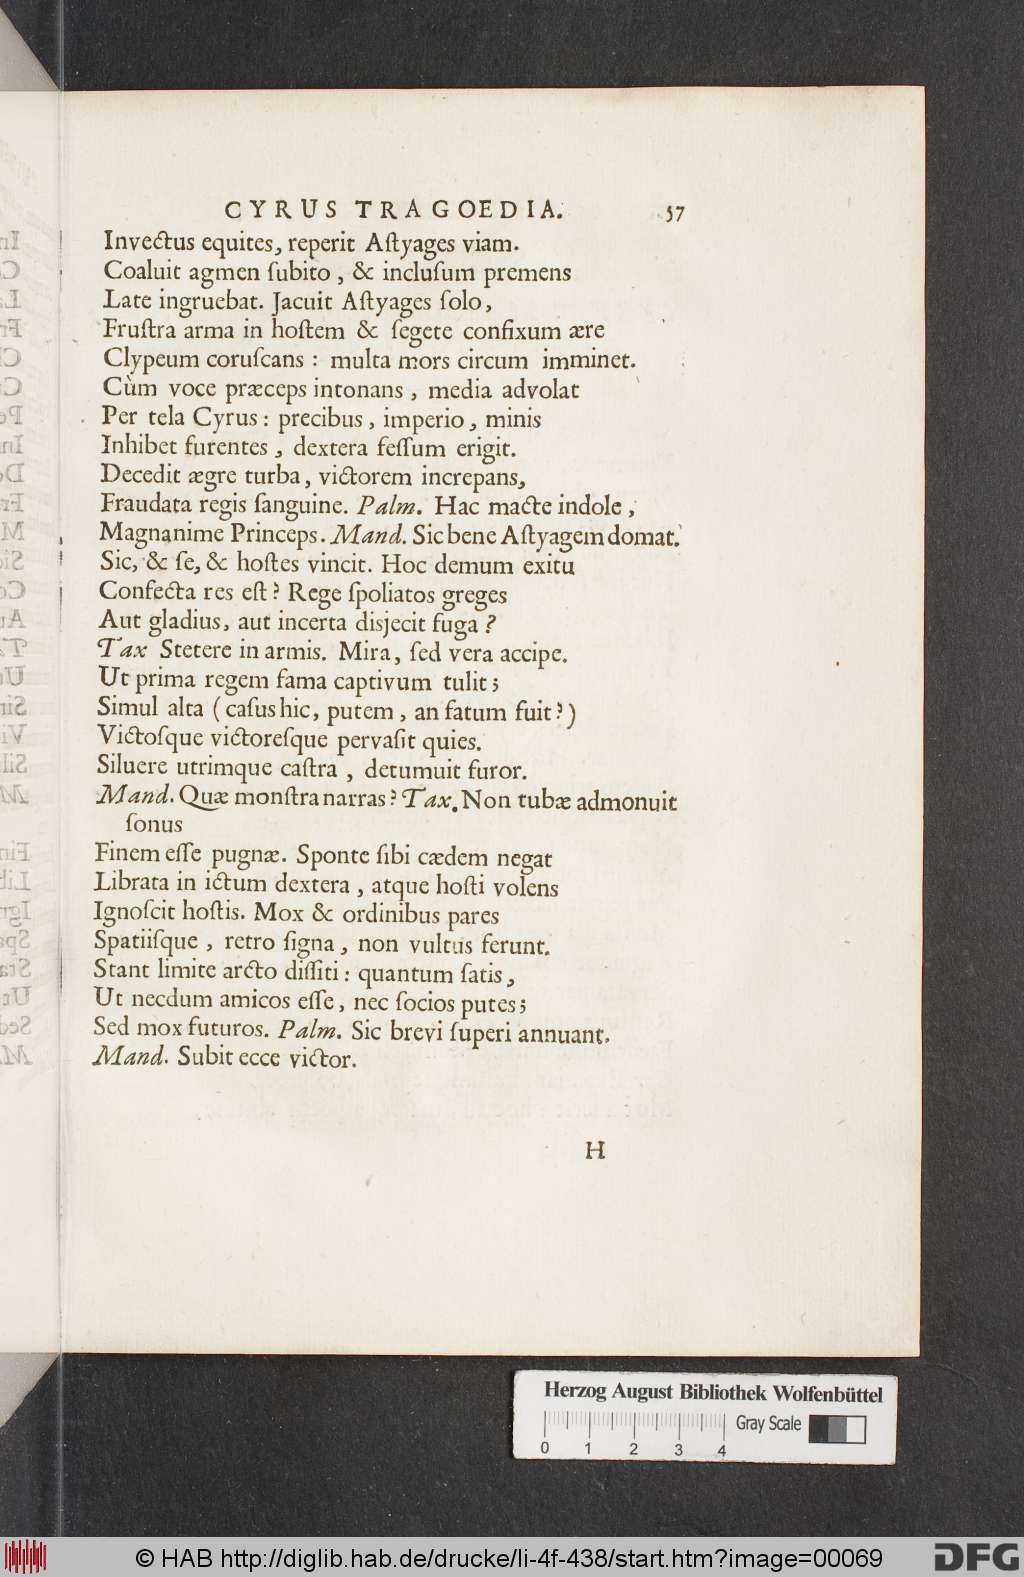 CYRUS TRAGOEDIA. 57
Invectus equites, reperit Aſtyages viam.
Coaluit agmen ſubito, & incluſum premens
Late ingruebat. Jacuit Aſtyages ſolo,
Fruſtra arma in hoſtem & ſegete confixum ære
Clypeum coruſcans : multa mors circum imminet.
Cùm voce præceps intonans, media advolat
Per tela Cyrus : precibus, imperio, minis
Inhibet furentes, dextera feſſum erigit.
Decedit ægre turba, victorem increpans,
Fraudata regis ſanguine. Palm. Hac macte indole,
Magnanime Princeps. Mand. Sic bene Aſtyagem domat.
Sic, & ſe, & hoſtes vincit. Hoc demum exitu
Confecta res eſt? Rege ſpoliatos greges
Aut gladius, aut incerta disjecit fuga?
Tax Stetere in armis. Mira, ſed vera accipe.
Ut prima regem fama captivum tulit;
Simul alta (caſus hic, putem, an fatum fuit?)
Victoſque victoreſque pervaſit quies.
Siluere utrimque caſtra, detumuit furor.
Mand. Quæ monſtra narras? Tax. Non tubæ admonuit
ſonus
Finem eſſe pugnæ. Sponte ſibi cædem negat
Librata in ictum dextera, atque hoſti volens
Ignoſcit hoſtis. Mox & ordinibus pares
Spatiiſque, retro ſigna, non vultus ferunt.
Stant limite arcto diſſiti : quantum ſatis,
Ut necdum amicos eſſe, nec ſocios putes;
Sed mox futuros. Palm. Sic brevi ſuperi annuant.
Mand. Subit ecce victor.
H
Herzog August Bibliothek Wolfenbüttel
Gray Scale
0 1 2 3 4
© HAB http://diglib.hab.de/drucke/li-4f-438/start.htm?image=00069
DFG